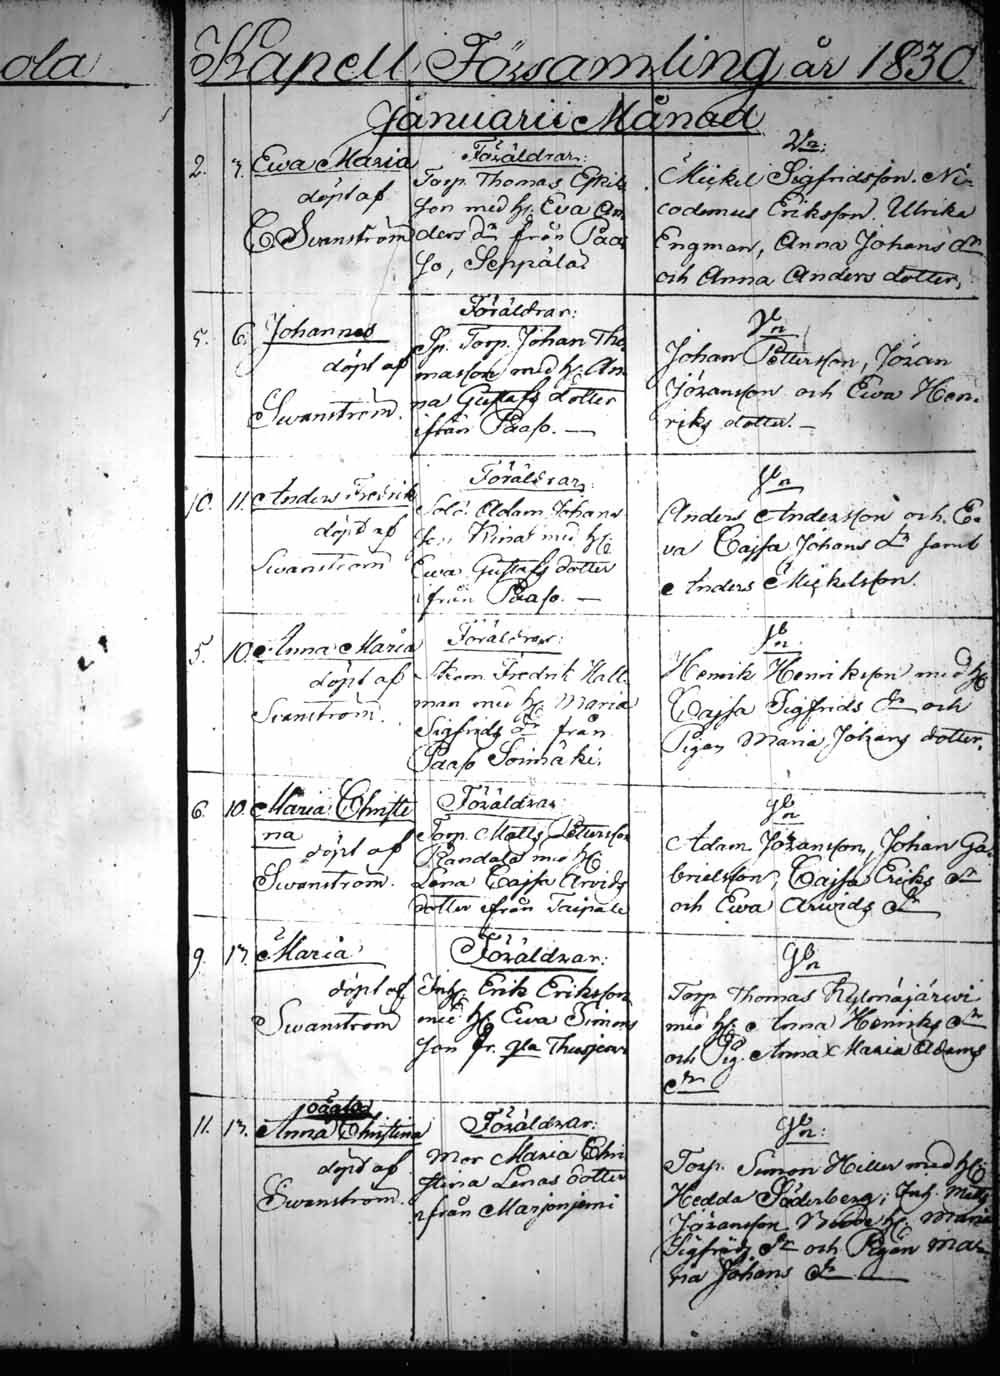 ola
Kapell Församling år 1830
Januarii Månad
2. 7. Ewa Maria
döpt af
C Svanström
Föräldrar:
Torp. Thomas Eskils
son med h. Eva An
ders dr från Paa
so, Seppälä
Vn:
Mickel Sigfridsson. Ni-
codemus Eriksson. Ulrika
Engman, Anna Johans dr
och Anna Anders dotter,
5. 6. Johannes
döpt af
Swanström.
Föräldrar:
Sp. Torp. Johan Tho
masson med h. An
na Gustafs dotter
ifrån Paaso. —
Johan Pettersson, Jöran
Jöransson och Ewa Hen-
riks dotter. —
10. 11. Anders Fredrik
döpt af
Swanström
Föräldrar:
Sold. Adam Johans
son Kinat med h
Ewa Gustafs dotter
ifrån Paaso. —
Anders Andersson och E-
va Cajsa Johans dr samt
Anders Mickelsson.
5. 10. Anna Maria
döpt af
Svanström.
Föräldrar:
Fredrik Hall
man med h. Maria
Sigfrids dr från
Paaso Soimäki.
Henrik Henriksson med h
Cajsa Sigfrids dr och
Pigan Maria Johans dotter.
6. 10. Maria Christi
na
döpt af
Swanström.
Föräldrar:
Torp. Matts Pettersson
Randala med h
Lena Cajsa Arvids
dotter ifrån Taipale
Adam Jöransson, Johan Ga-
brielsson, Cajsa Eriks dr
och Ewa Arwids dr
9. 17. Maria
döpt af
Swanström
Föräldrar:
Inh. Erik Eriksson
med h. Ewa Simons
Torp. Thomas
med h. Anna Henriks dr
och Pig. Anna Maria Adams
dr
11. 17. oägta
Anna Christina
döpt af
Swanström.
Föräldrar:
Mor Maria Chri
stina Lenas dotter
ifrån Marjonjemi
Torp. Simon Hiller med h
Hedda Söderberg; Inh. Matts
Jöransson h. Maria
Sigfrids dr och Pigan Ma-
ria Johans dr —